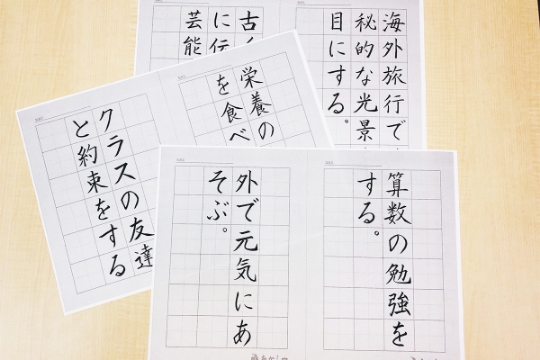 海外旅行で
秘的な光景
目にする。
古
に伝
芸能
栄養の
を食べ
クラスの友達
と約束をする
算数の勉強を
する。
外で元気にあ
そぶ。